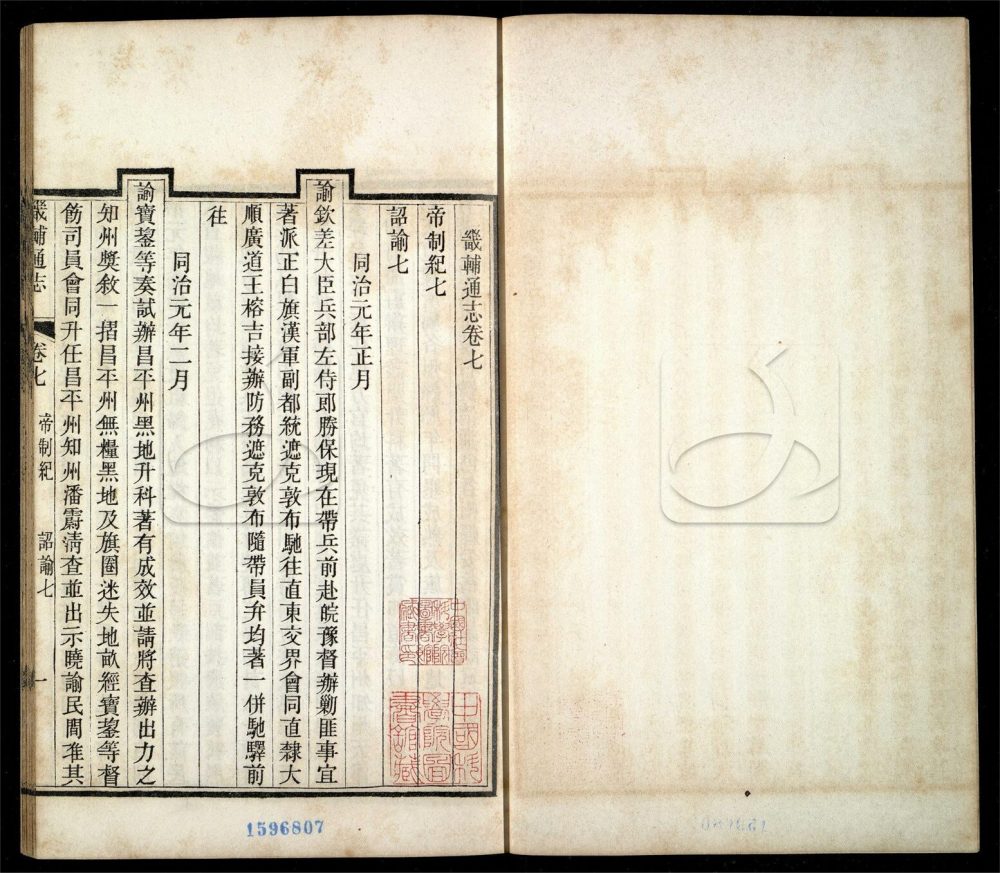 畿輔通志卷七
帝制紀七
詔諭七
同治元年正月
諭欽差大臣兵部左侍郎勝保現在帶兵前赴皖豫督辦勦匪事宜
著派正白旗漢軍副都統遮克敦布馳往直東交界會同直隸大
順廣道王榕吉接辦防務遮克敦布隨帶員弁均著一併馳驛前
往
同治元年二月
諭寶鋆等奏試辦昌平州黑地升科著有成效並請將查辦出力之
知州獎敘一摺昌平州無糧黑地及旗圈迷失地畝經寶鋆等督
飭司員會同升任昌平州知州潘霨淸查並出示曉諭民間准其
畿輔通志 卷七 帝制紀 詔諭七 一
中國科
學院圖
書館藏
1596807